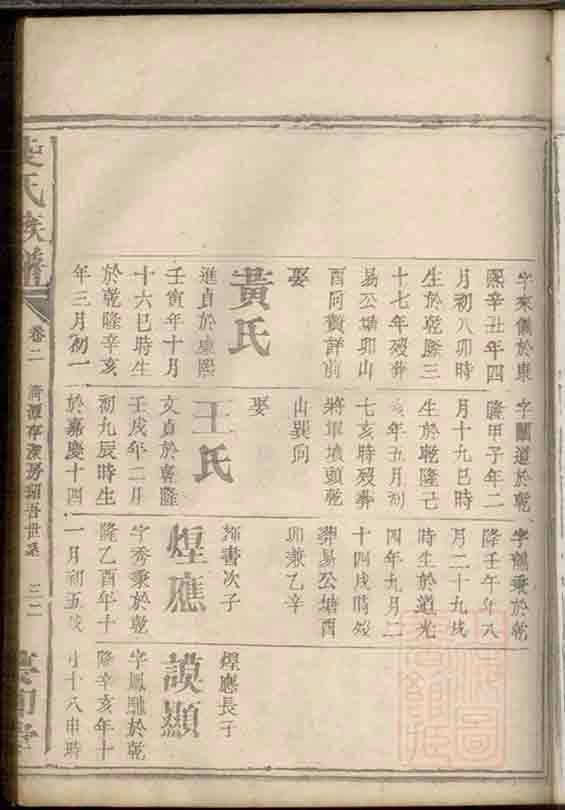 字來儀於康
熙辛丑年四
月初八卯時
生於乾隆三
十七年歿葬
易公塘卯山
酉向費詳前
娶
黃氏
進貞於康熙
壬寅年十月
十六巳時生
於乾隆辛亥
年三月初一
字蘭道於乾
隆甲子年二
月十九巳時
生於乾隆己
亥年五月初
七亥時歿葬
將軍墳頭乾
山巽向
娶
王氏
文貞於乾隆
壬戌年二月
初九辰時生
於嘉慶十四
字秉於乾
隆壬午年八
月二十九戌
時生於道光
四年九月二
十四戌時歿
葬易公塘酉
卯兼乙辛
書次子
煌應
字秀秉於乾
隆乙酉年十
一月初五戌
煌應長子
謨顯
字鳳於乾
隆辛亥年十
月十八申時
氏族譜
卷二
房紹吾世系
三二
堂